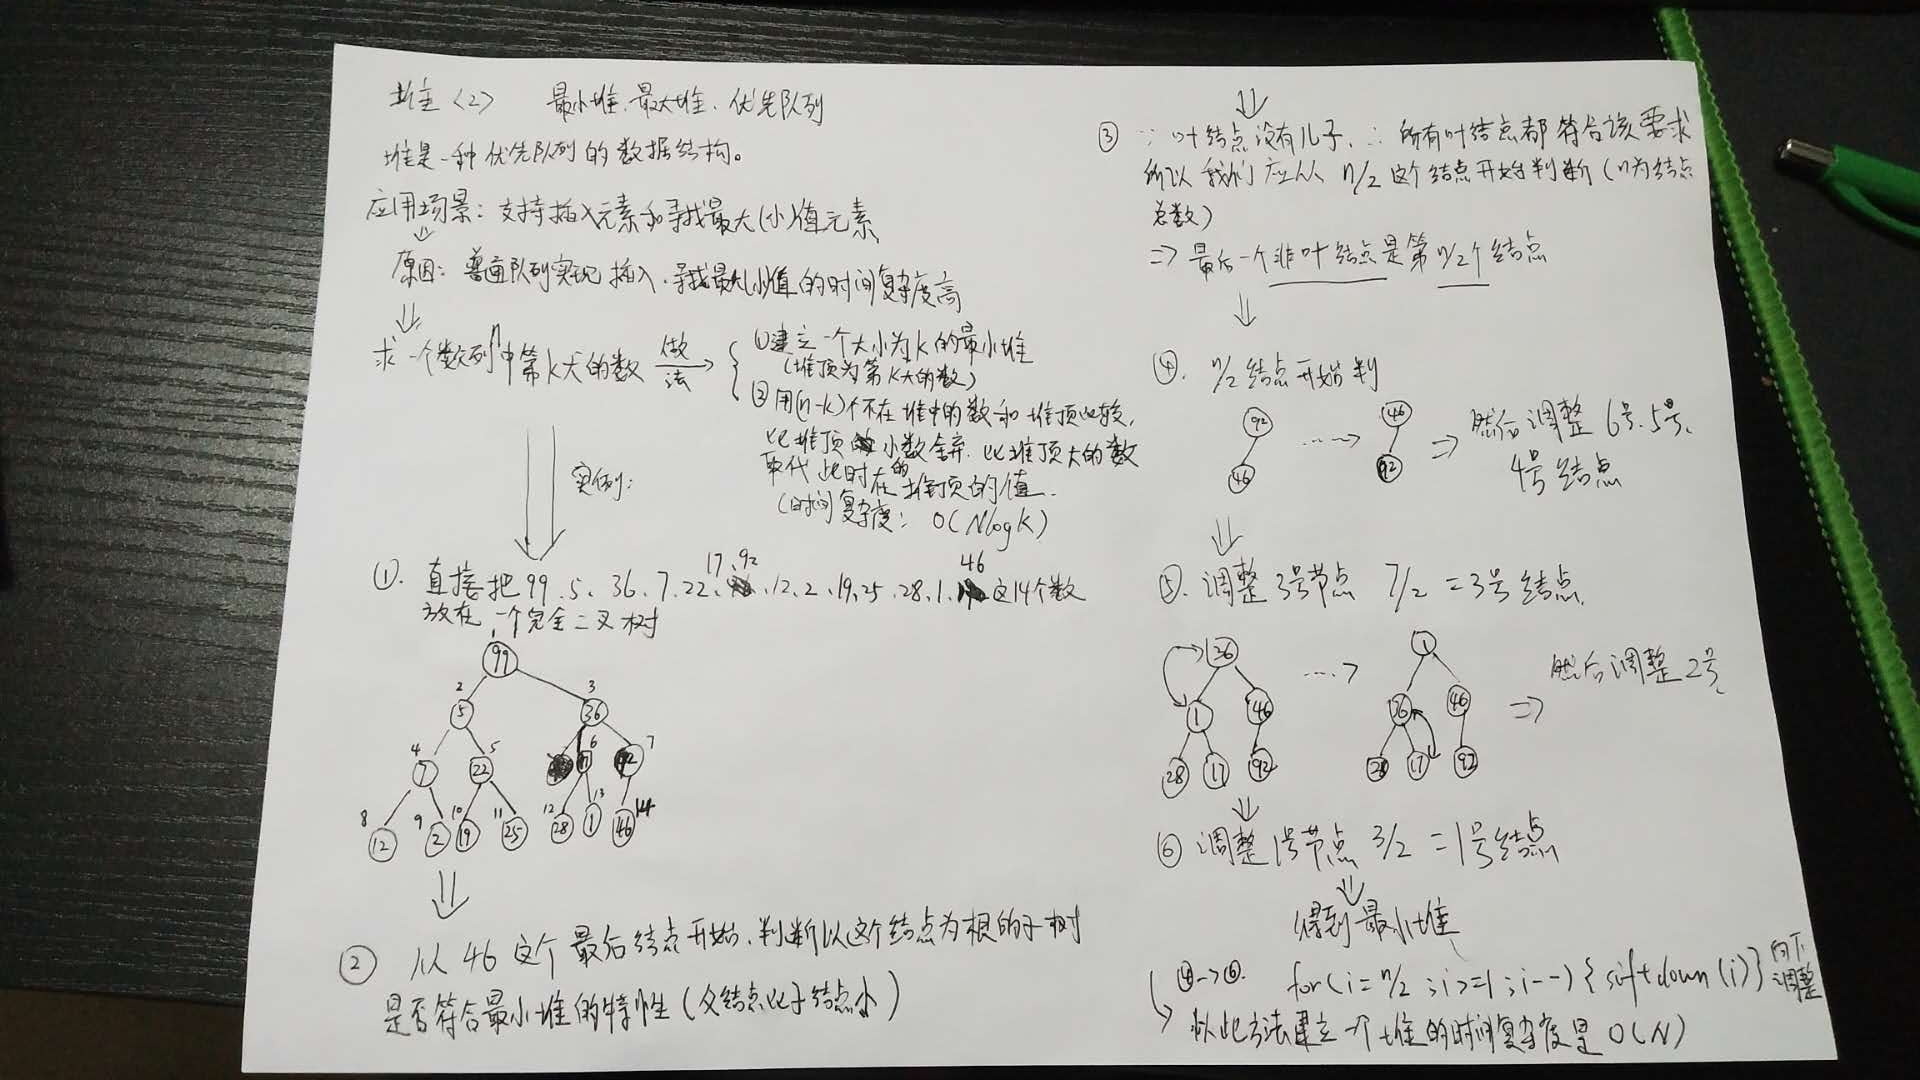 堆<2> 最小堆、最大堆、优先队列
堆是一种优先队列的数据结构。
应用场景：支持插入元素和寻找最大(小)值元素
⇓
原因：普通队列实现插入、寻找最大(小)值的时间复杂度高
⇓
求一个数列n中第k大的数 做法→
①建立一个大小为k的最小堆
(堆顶为第k大的数)
②用(n-k)个不在堆中的数和堆顶比较,
比堆顶小数舍弃.比堆顶大的数
取代此时在堆顶的值.
(时间复杂度：O(NlogK)
实例:
①. 直接把99、5、36、7、22、17、92、12、2、19、25、28、1、46这14个数
放在一个完全二叉树
1
99
2 3
5 36
4 5 6 7
7 22 17 92
8 9 10 11 12 13 14
12 2 19 25 28 1 46
⇓
② 从46这个最后结点开始,判断以这个结点为根的子树
是否符合最小堆的特性(父结点比子结点小)
⇓
③ ∵叶结点没有儿子,∴所有叶结点都符合该要求
所以我们应从n/2这个结点开始判断(n为结点
总数)
⇒最后一个非叶结点是第n/2个结点
⇓
④. n/2结点开始判
92 46
46 92
⇒ 然后调整6号、5号、
4号结点
⇓
⑤. 调整3号节点 7/2=3号结点.
36 1
1 46 36 46
28 17 92 28 17 92
⇒ 然后调整2号、
⇓
⑥ 调整1号节点 3/2=1号结点
⇓
得到最小堆
④→⑥. for(i=n/2;i>=1;i--){siftdown(i)} 向下
调整
以此方法建立一个堆的时间复杂度是O(N)